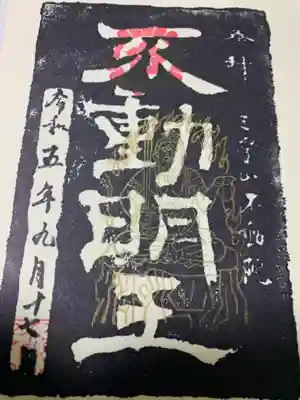 奉拝 三峯山不動院
不動明王
令和五年九月十七日